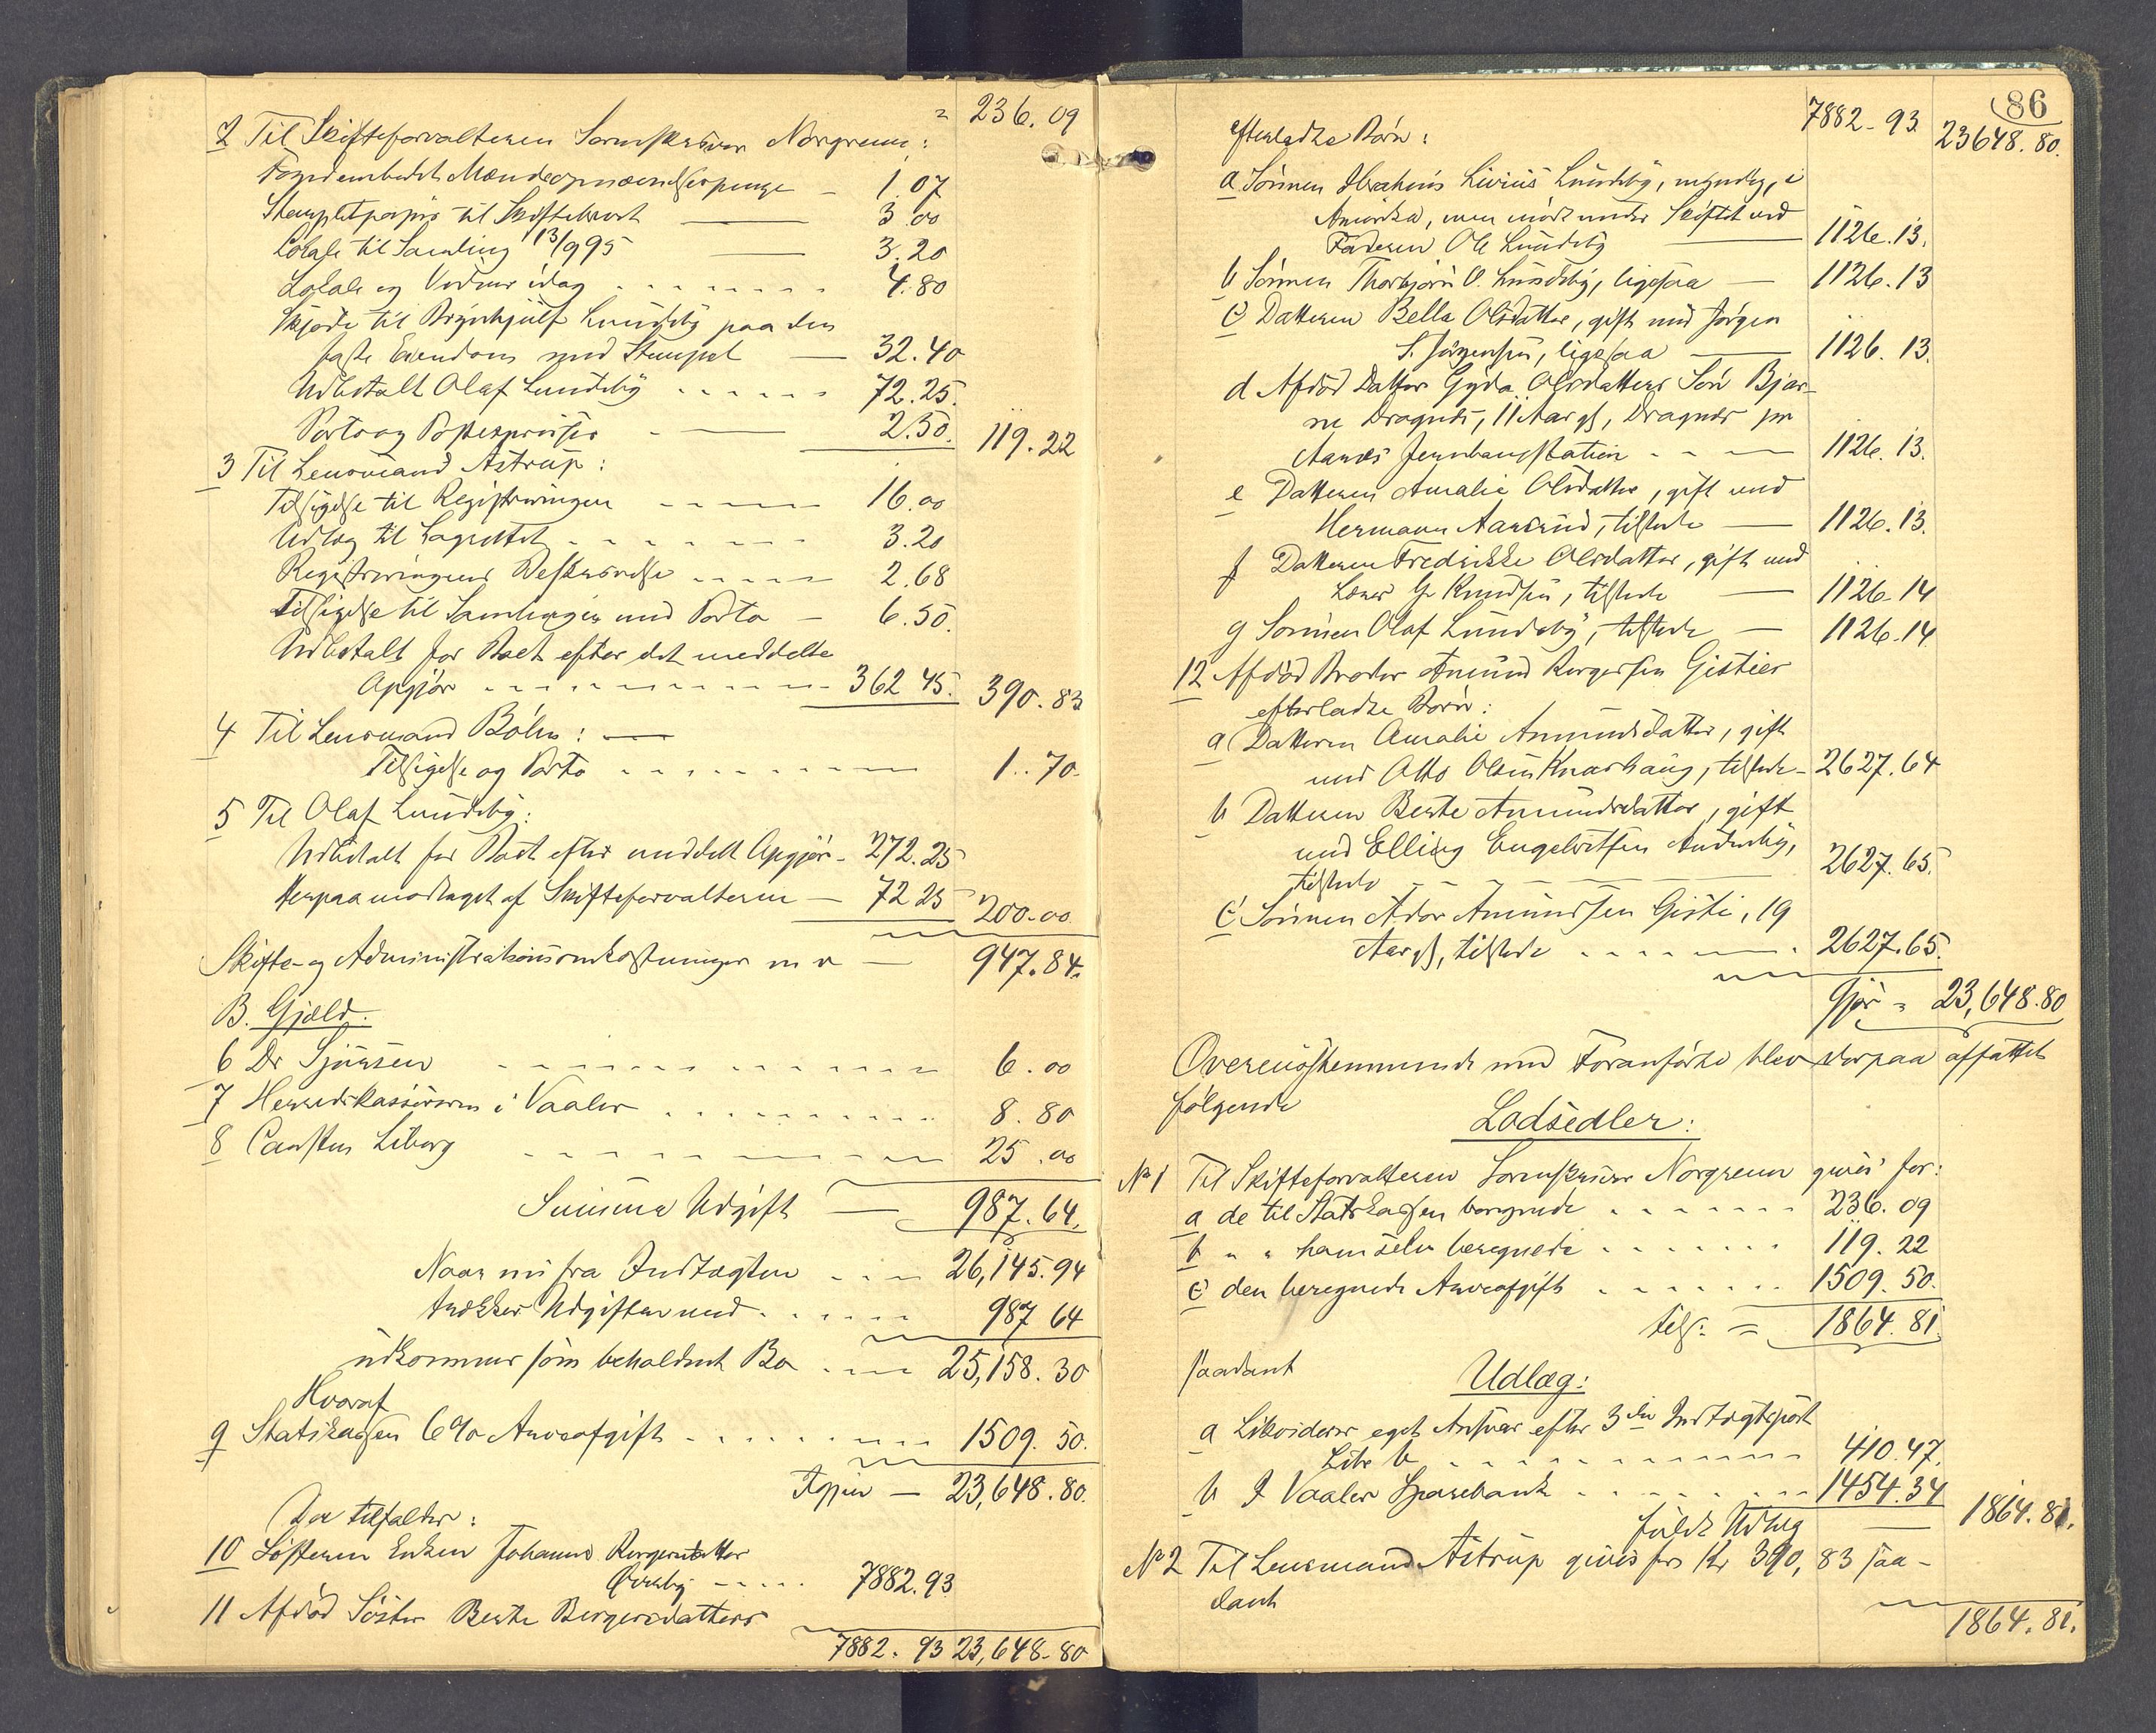 " 236.09
2 Til Skifteforvalteren Sorenskriver Norgrenn:
Stemplet papir til Skiftebrevet 3.00
1.07
Lokale til Samling 13/9 95 3.20
Lokale og Vidner idag 4.80
Skjøde til Brynhjulf Lundeby paa den
faste Eiendom med Stempel 32.40
Udbetalt Olaf Lundeby 72.25
Porto og 2.50. 119.22
3 Til Lensmand Astrup:
Tilsigelse til Registreringen 16.00
Udlæg til Lagrettet 3.20
Registreringens Beskrivelse 2.68
Tilsigelse til Samlingen med Porto 6.50.
Udbetalt for Boet efter det meddelte
Opgjør 362 45. 390.83
4 Til Lensmand Bøhn:
Tilsigelse og Porto 1..70.
5 Til Olaf Lundeby:
Udbetalt for Boet efter meddelt Opgjør 272.25
Herpaa modtaget af Skifteforvalteren 72 25 200.00
Skifte- og Administrationsomkostninger m v 947.84.
B. Gjæld.
6 Dr Sjursen 6.00
7 Herredskassereren i Vaaler 8.80
8 Carsten Liborg 25.00
Summa Udgift 987.64.
Naar nu fra Indtægten 26,145.94
trækkes Udgiften med 987 64
udkommer som beholdent Bo 25,158.30
Hvoraf
9 Statskassen 6% Arveafgift 1509.50.
Igjen 23,648.80.
Der tilfalder:
10 Søsteren Enken Johanne Bergersdatter
7882.93
11 Afdød Søster Berte Bergersdatters
7882.93 23,648.80
86
7882.93 23648.80.
efterladte Børn:
a Sønnen Abraham Livius Lundeby, myndig, i
Amerika, men mødt under Skiftet ved
Faderen Ole Lundeby 1126.13.
b Sønnen Thorbjørn O. Lundeby, ligesaa 1126.13
c Datteren Bella Olsdatter, gift med Jørgen
S. Jørgensen, ligesaa 1126.13.
d Afdød Datter Gyda Olsdatters Søn Bjar-
ne Dragnes, 11 Aar gl, Dragnes pr
Aarnes Jernbanestation 1126.13.
e Datteren Amalie Olsdatter, gift med
Hermann Aaserud, tilstede 1126.13.
f Datteren Fredrikke Olsdatter, gift med
Knudsen, tilstede 1126.14
g Sønnen Olaf Lundeby, tilstede 1126.14
12 Afdød Broder Amund Bergersen Gisties
efterladte Børn:
a Datteren Amalie Amundsdatter, gift
med Otto Olsen Knarhaug, tilstede 2627.64
b Datteren Berte Amundsdatter, gift
med Elling Engebretsen Auderby,
tilstede 2627.65.
c Sønnen Ador Amundsen Gisti, 19
Aar gl, tilstede 2627.65.
Gjør = 23,648.80
Overensstemmende med Foranførte blev derpaa affattet
følgende
Lodsedler:
No 1 Til Skifteforvalteren Sorenskriver Norgrenn gives for:
a de til Statskassen beregnede 236.09
b " " ham selv beregnede 119.22
c den beregnede Arveafgift 1509.50.
tils: = 1864.81.
saadant
Udlæg:
a Likviderer eget Ansvar efter 3die Indtægtspost
Litr b 410.47.
b I Vaaler Sparebank 1454.34
fuldt Udlæg 1864.81.
No 2 Til Lensmand Astrup gives for Kr 390,83 saa-
dant
1864.81.